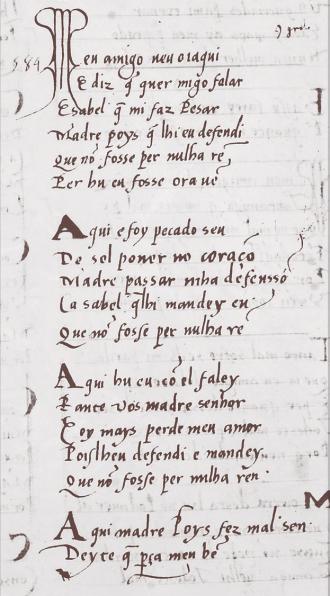 584
Meu amigo neuo oiaqui
E diz q̃ quer migo falar
E sabel q̃ mi faz pesar
Madre poys q̃ lhi eu defendi
Que nõ fosse per nulha rẽ
Per hu eu fosse ora uẽ
A qui e foy pecado seu
De sol poner no coraçõ
Madre passar mha defenssõ
Ca sabel q̃lhi mandey eu
Que nõ fosse per nulha rẽ
A qui hu eu cõ el faley
Rante uos madre senhor
E oy mays perde meu amor
Poislheu defendi e mandey
Que nõ fosse per nulha ren
A qui madre poys fez mal sen
Deyte q̃ pça meu bẽ